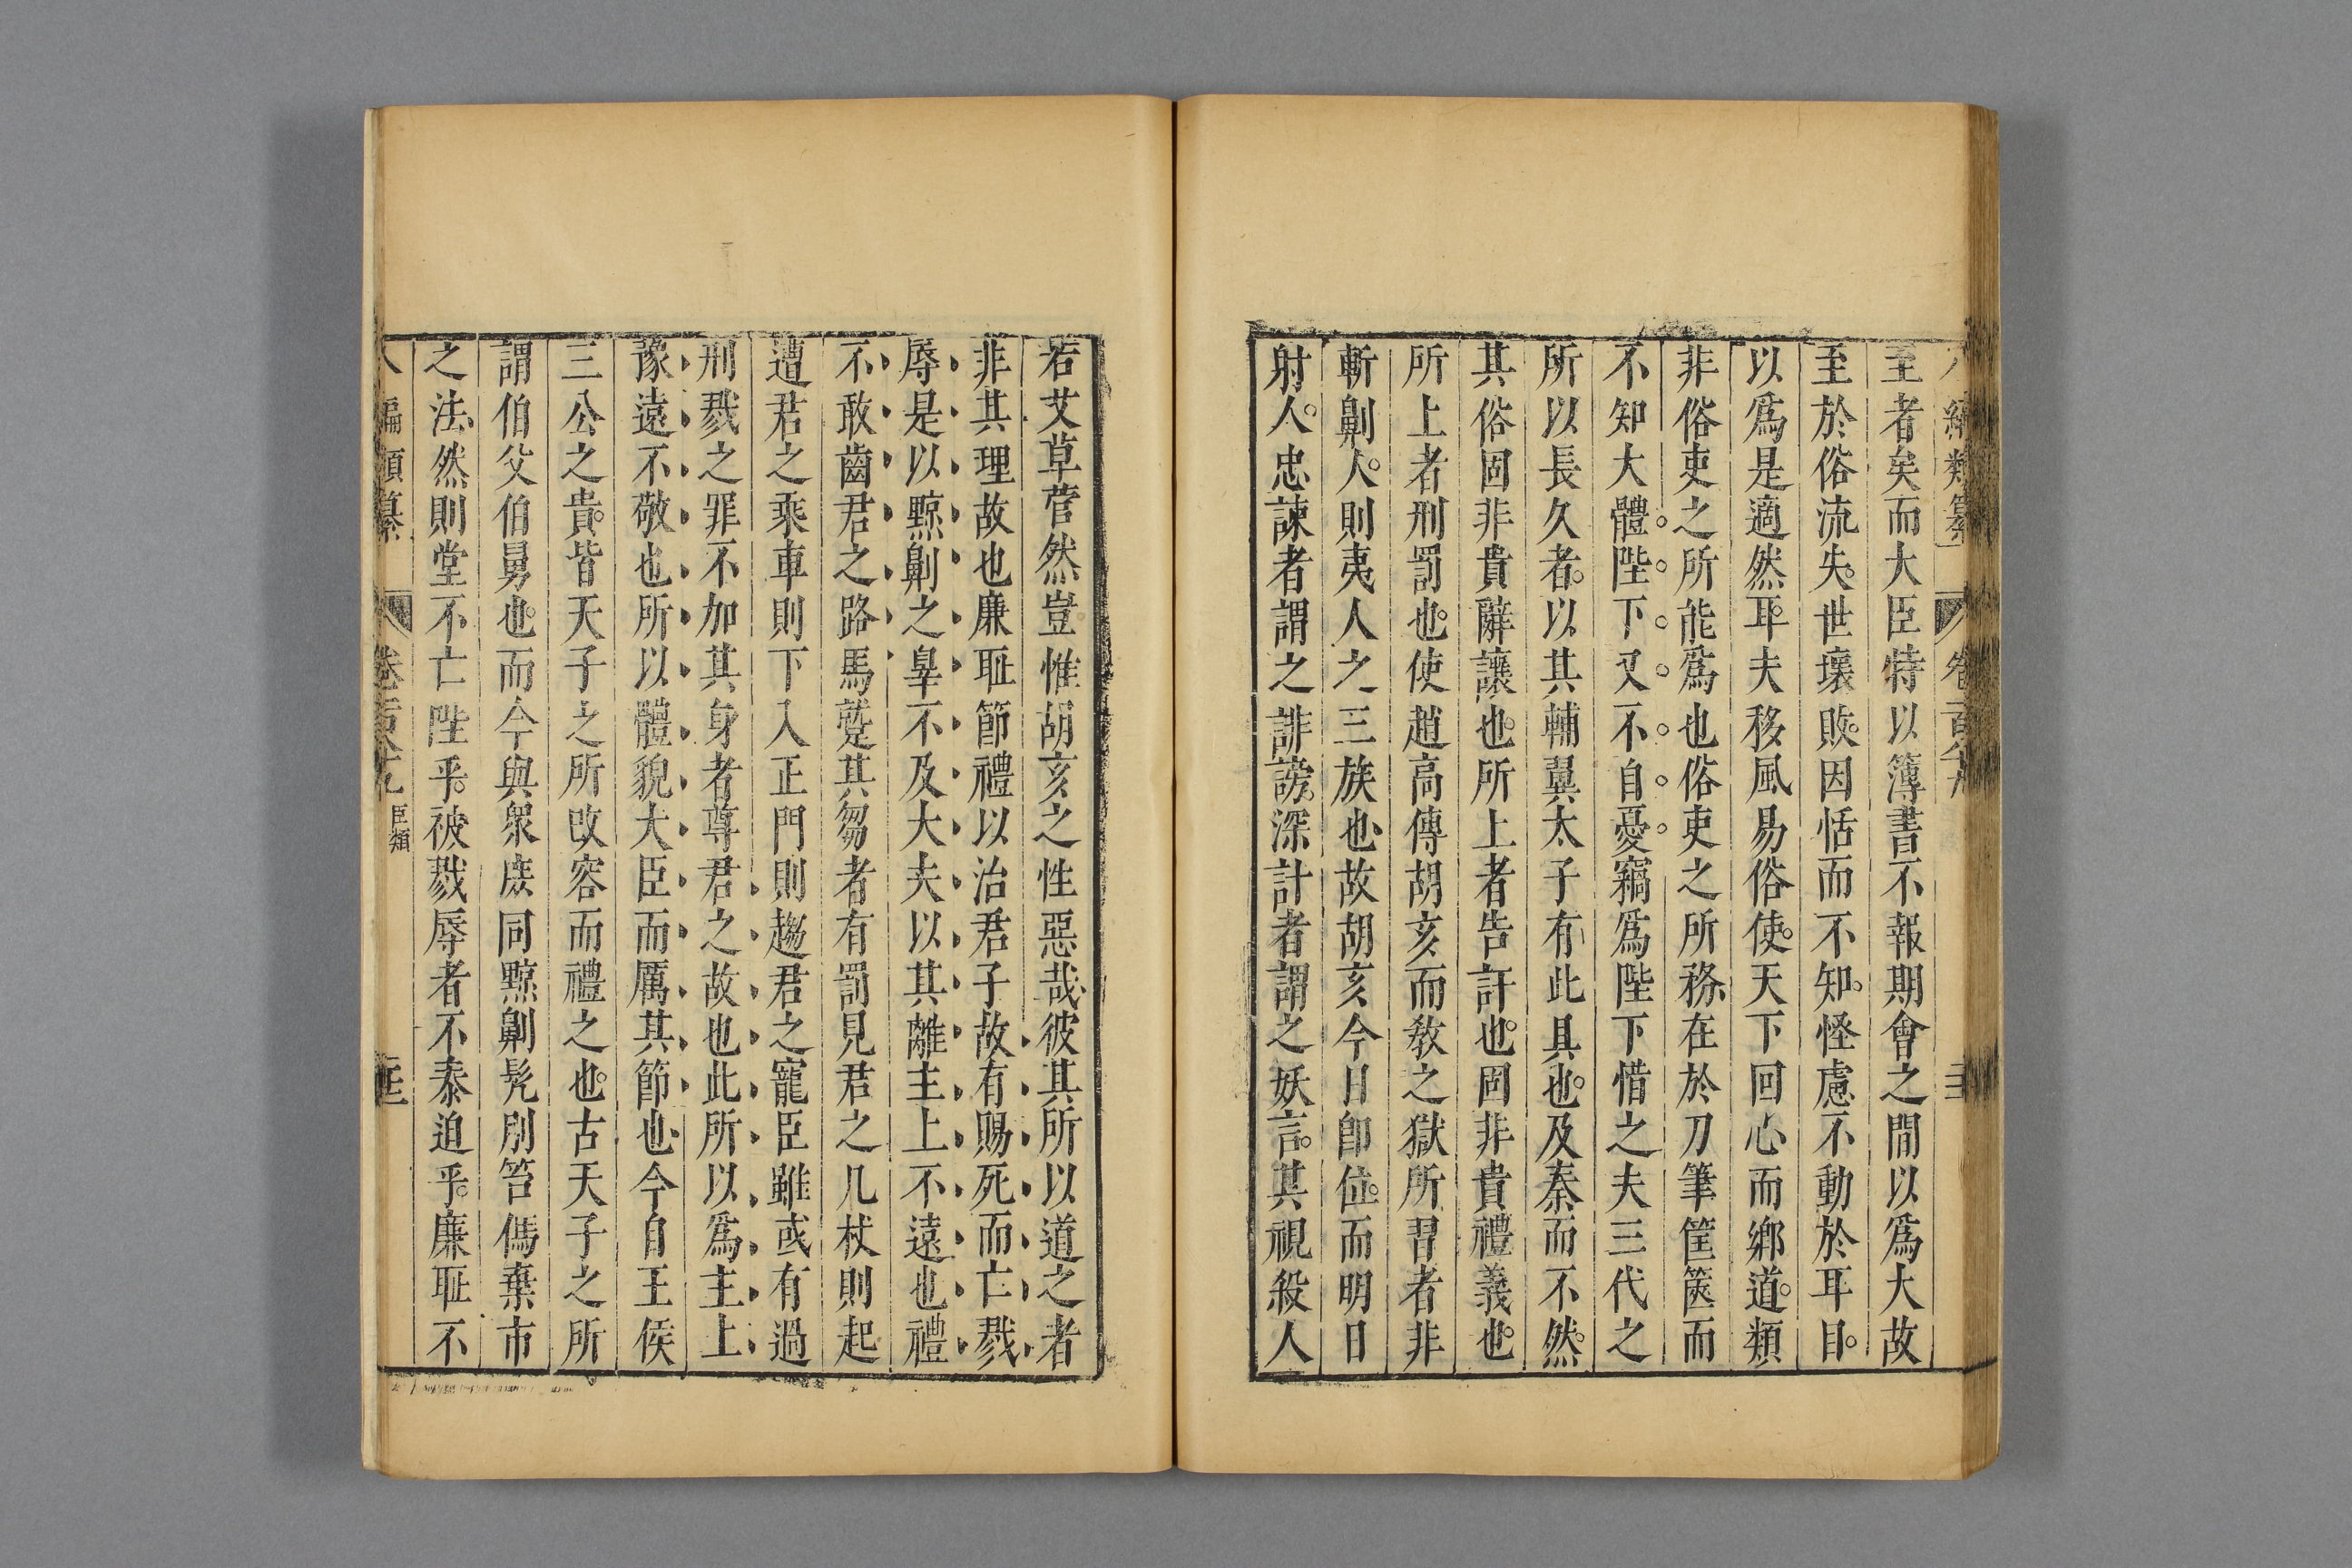 編類纂
至者矣而大臣特以簿書不報期會之間以爲大故
至於俗流失世壞敗因恬而不知怪慮不動於耳目
以爲是適然耳夫移風易俗使天下回心而鄉道類
非俗吏之所能爲也俗吏之所務在於刀筆筐篋而
不知大體陛下又不自憂竊爲陛下惜之夫三代之
所以長久者以其輔翼太子有此具也及秦而不然
其俗固非貴辭讓也所上者告訐也固非貴禮義也
所上者刑罰也使趙高傅胡亥而教之獄所習者非
斬劓人則夷人之三族也故胡亥今日即位而明日
射人忠諫者謂之誹謗深計者謂之妖言其視殺人
若艾草菅然豈惟胡亥之性惡哉彼其所以道之者
非其理故也廉耻節禮以治君子故有賜死而亡戮
辱是以黥劓之辠不及大夫以其離主上不遠也禮
不敢齒君之路馬蹵其芻者有罰見君之几杖則起
遭君之乘車則下入正門則趨君之寵臣雖或有過
刑戮之罪不加其身者尊君之故也此所以爲主上
豫遠不敬也所以體貌大臣而厲其節也今自王侯
三公之貴皆天子之所改容而禮之也古天子之所
謂伯父伯舅也而今與衆庶同黥劓髡刖笞傌棄市
之法然則堂不亡陛乎被戮辱者不泰迫乎廉耻不
八編類纂 卷 臣類